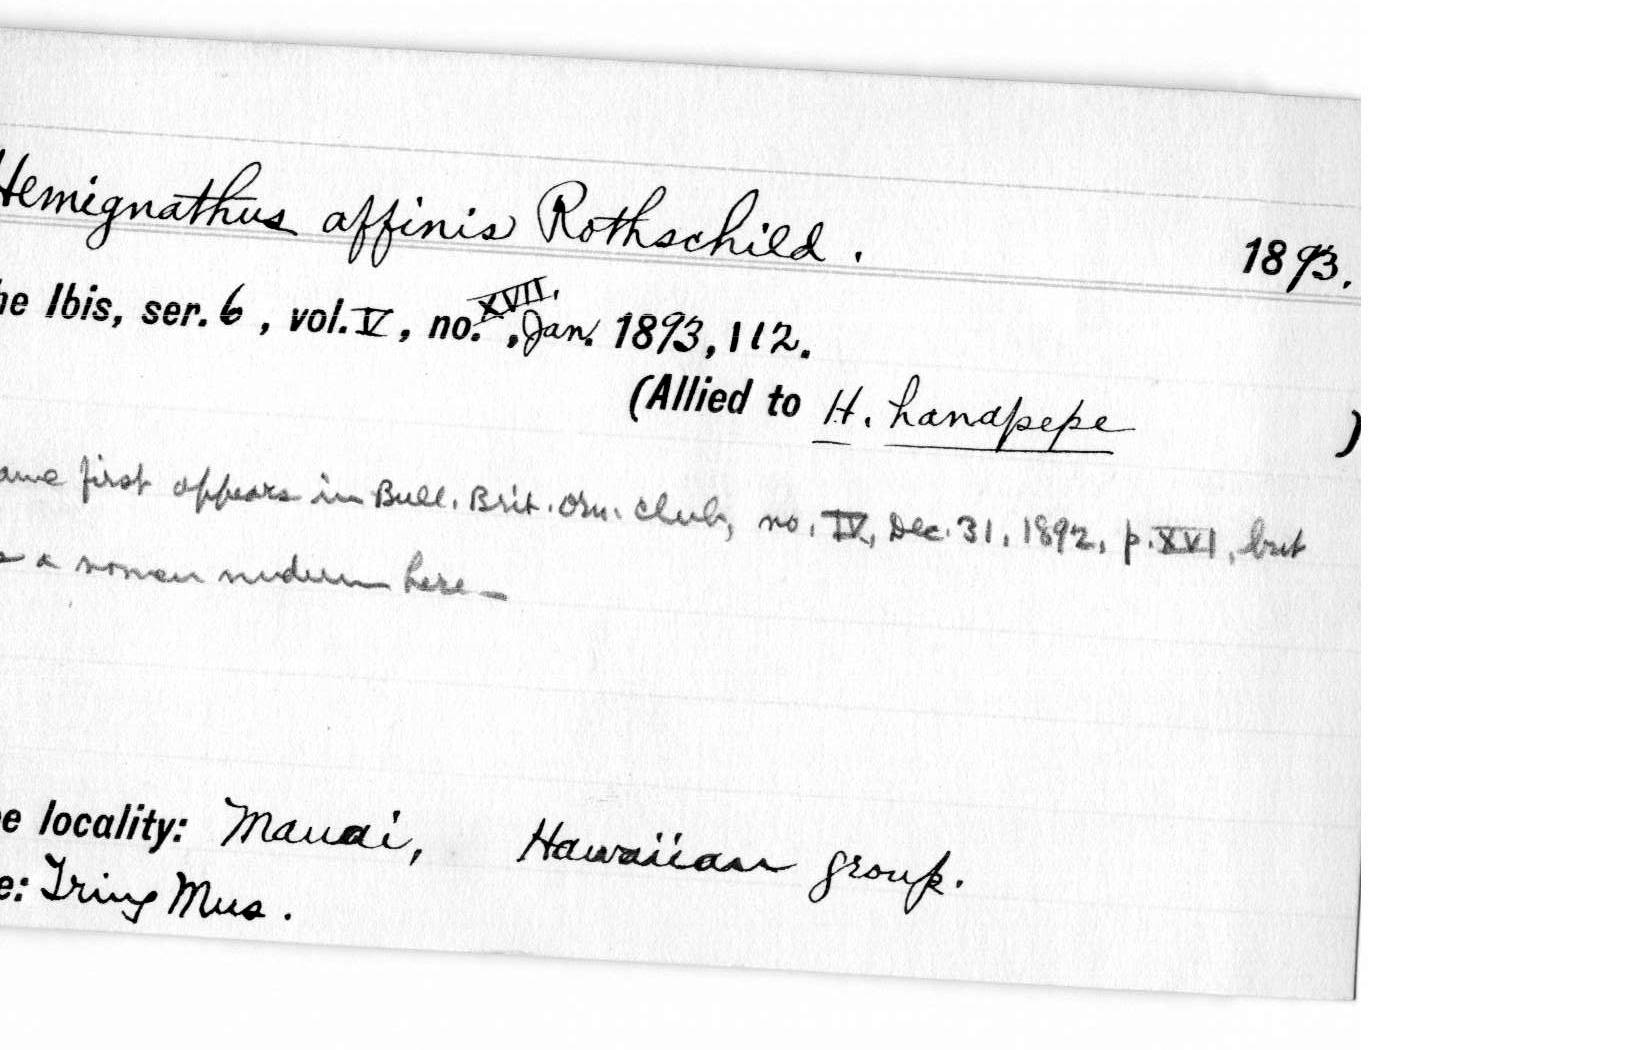 Hemignathus affinis Rothschild. 1893.
he Ibis, ser. 6, vol. V, no. XVII., Jan. 1893, 112.
(Allied to H. hanapepe )
ame first appears in Bull. Brit. Orn. Club, no. IV, Dec. 31, 1892, p. XVI, but
s a nomen nudum here—
e locality: Mauai, Hawaiian group.
e: Tring Mus.